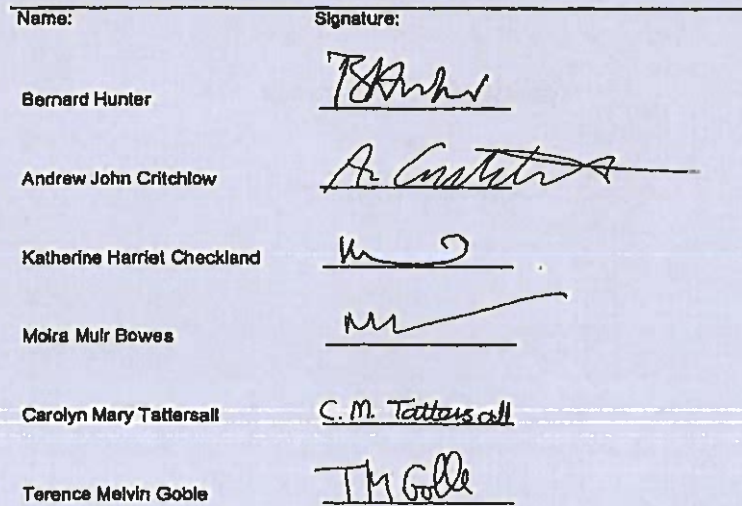 Name: Signature:
Bernard Hunter BHunter
Andrew John Critchlow
Katherine Harriet Checkland
Moira Muir Bowes
Carolyn Mary Tattersall C.M. Tattersall
Terence Melvin Goble TM Goble